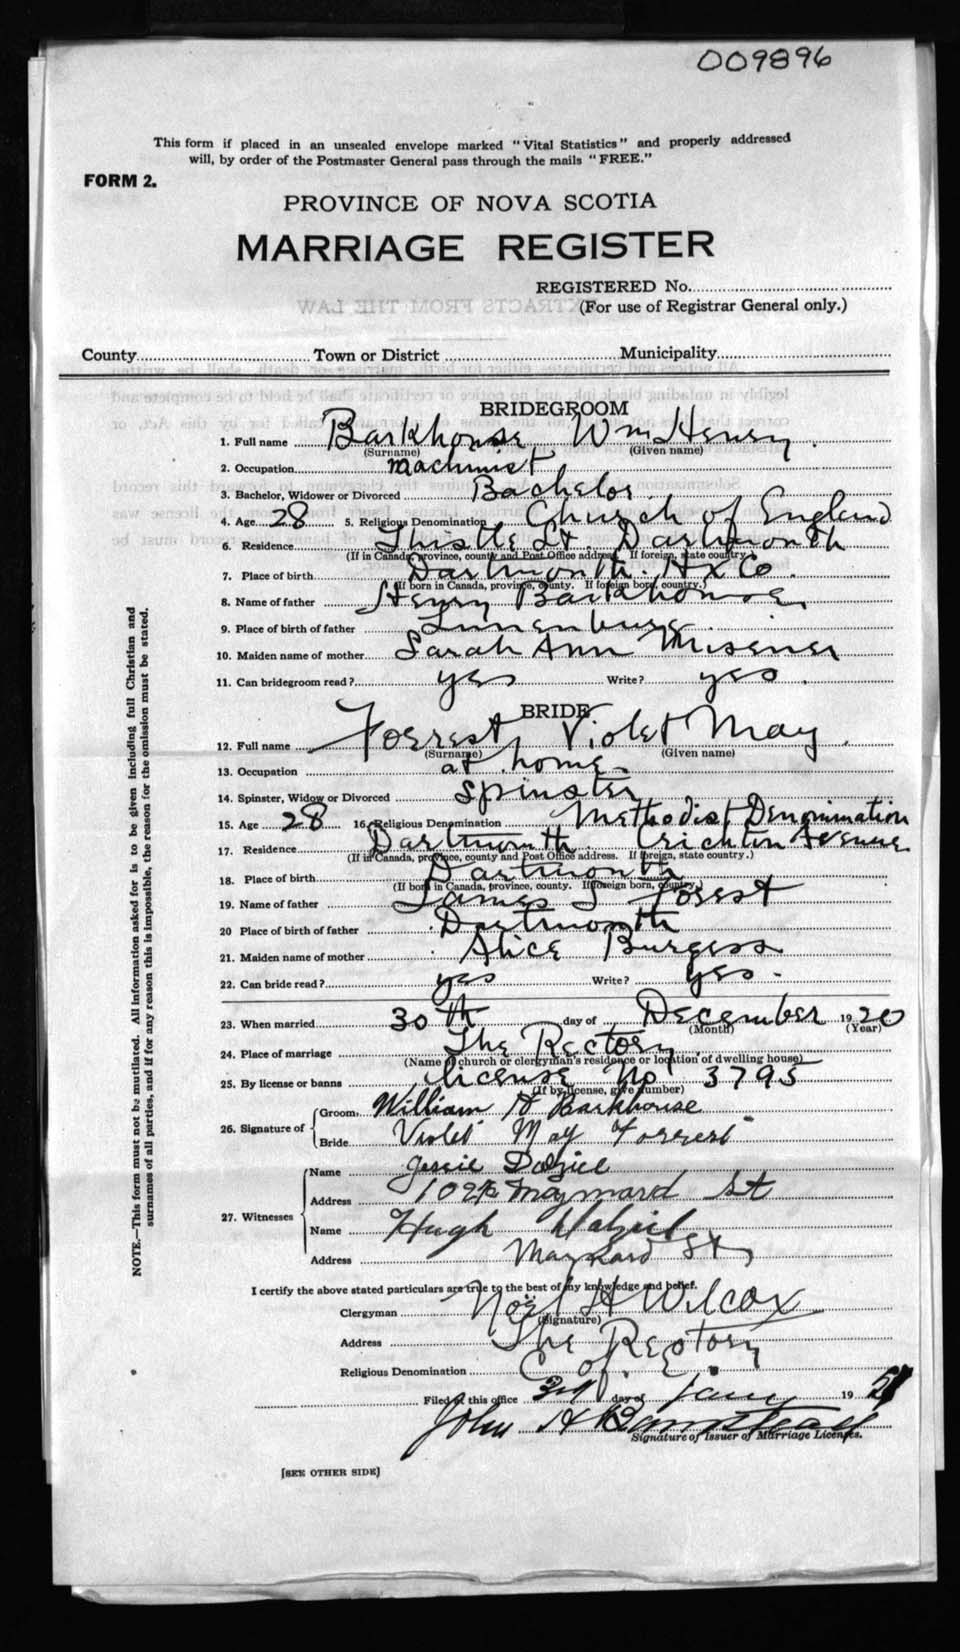 009896
This form if placed in an unsealed envelope marked "Vital Statistics" and properly addressed
will, by order of the Postmaster General pass through the mails "FREE."
FORM 2.
PROVINCE OF NOVA SCOTIA
MARRIAGE REGISTER
REGISTERED No.
(For use of Registrar General only.)
County Town or District Municipality
BRIDEGROOM
1. Full name Barkhouse Wm Henry.
(Surname) (Given name)
2. Occupation machinist
3. Bachelor, Widower or Divorced Bachelor
4. Age 28 5. Religious Denomination Church of England
6. Residence Thistle St. Dartmouth
(If in Canada, province, county and Post Office address. If foreign, state country.)
7. Place of birth Dartmouth. Hx Co.
(If born in Canada, province, county. If foreign born, country.)
8. Name of father Henry Barkhouse,
9. Place of birth of father Lunenburg.
10. Maiden name of mother Sarah Ann Misener
11. Can bridegroom read? yes Write? yes.
BRIDE
12. Full name Forrest, Violet May.
(Surname) (Given name)
13. Occupation at home.
14. Spinster, Widow or Divorced Spinster
15. Age 28 16. Religious Denomination Methodist Denomination
17. Residence Dartmouth. Crichton Avenue
(If in Canada, province, county and Post Office address. If foreign, state country.)
18. Place of birth Dartmouth
(If born in Canada, province, county. If foreign born, country.)
19. Name of father James Forest
20 Place of birth of father Dartmouth
21. Maiden name of mother Alice Burgess
22. Can bride read? yes Write? yes.
23. When married 30th day of December 1920
(Month) (Year)
24. Place of marriage The Rectory
(Name of church or clergyman's residence or location of dwelling house)
25. By license or banns license No 3795
(If by license, give number)
26. Signature of Groom William H Barkhouse
Bride Violet May Forrest
27. Witnesses Name Jessie Dalziel
Address Maynard St
Name Hugh Dalziel
Address Maynard St,
I certify the above stated particulars are true to the best of my knowledge and belief.
Clergyman Noel H Wilcox
(Signature)
Address The Rectory
Religious Denomination C. of. E.
Filed at this office 3rd day of Jany 19
John A
Signature of Issuer of Marriage Licenses.
[SEE OTHER SIDE]
NOTE.—This form must not be mutilated. All information asked for is to be given including full Christian and
surnames of all parties, and if for any reason this is impossible, the reason for the omission must be stated.